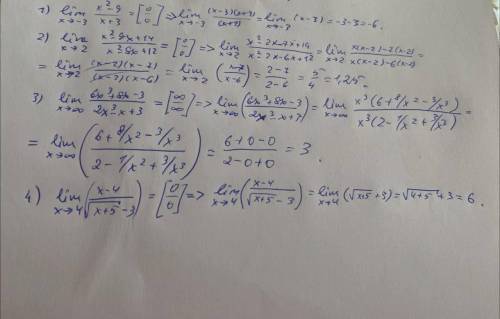 1) lim x→-3 (x²-9)/(x+3) = [0/0] => lim x→-3 (x-3)(x+3)/(x+3) = lim x→-3 (x-3) = -3-3 = -6.
2) lim x→2 (x²-9x+14)/(x²-8x+12) = [0/0] => lim x→2 (x²-2x-7x+14)/(x²-2x-6x+12) = lim x→2 (x(x-2)-7(x-2))/(x(x-2)-6(x-2)) =
= lim x→2 ((x-2)(x-7))/((x-2)(x-6)) = lim x→2 ((x-7)/(x-6)) = (2-7)/(2-6) = 5/4 = 1,25.
3) lim x→∞ (6x³+8x-3)/(2x³-x+3) = [∞/∞] => lim x→∞ ((6x³+8x-3)/(2x³-x+7)) = lim x→∞ (x³(6+8/x²-3/x³))/(x³(2-1/x²+3/x³)) =
= lim x→∞ ((6+8/x²-3/x³)/(2-1/x²+3/x³)) = (6+0-0)/(2-0+0) = 3.
4) lim x→4 ((x-4)/(√(x+5)-3)) = [0/0] => lim x→4 ((x-4)/(√(x+5)-3)) = lim x→4 (√(x+5)+3) = √(4+5)+3 = 6.